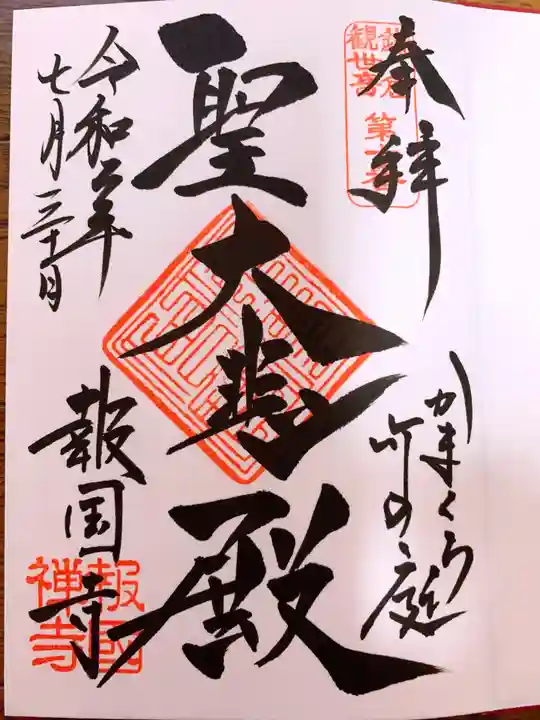 奉拝
鎌倉
観世音
第十番
かまくら
竹の庭
聖大悲殿
令和二年
七月三十日
報国寺
報國
禅寺